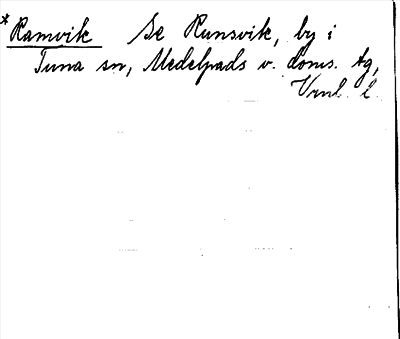 *Ramvik Se Runsvik, by i
Tuna sn, Medelpads v. doms. tg,
Vrnl. l.